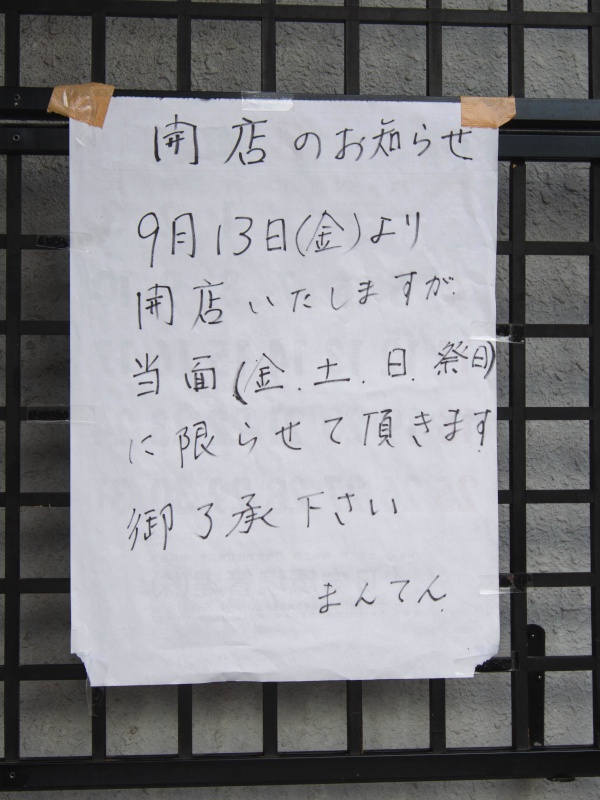 開店のお知らせ
9月13日(金)より
開店いたしますが、
当面(金.土.日.祭日)
に限らせて頂きます
御了承下さい
まんてん